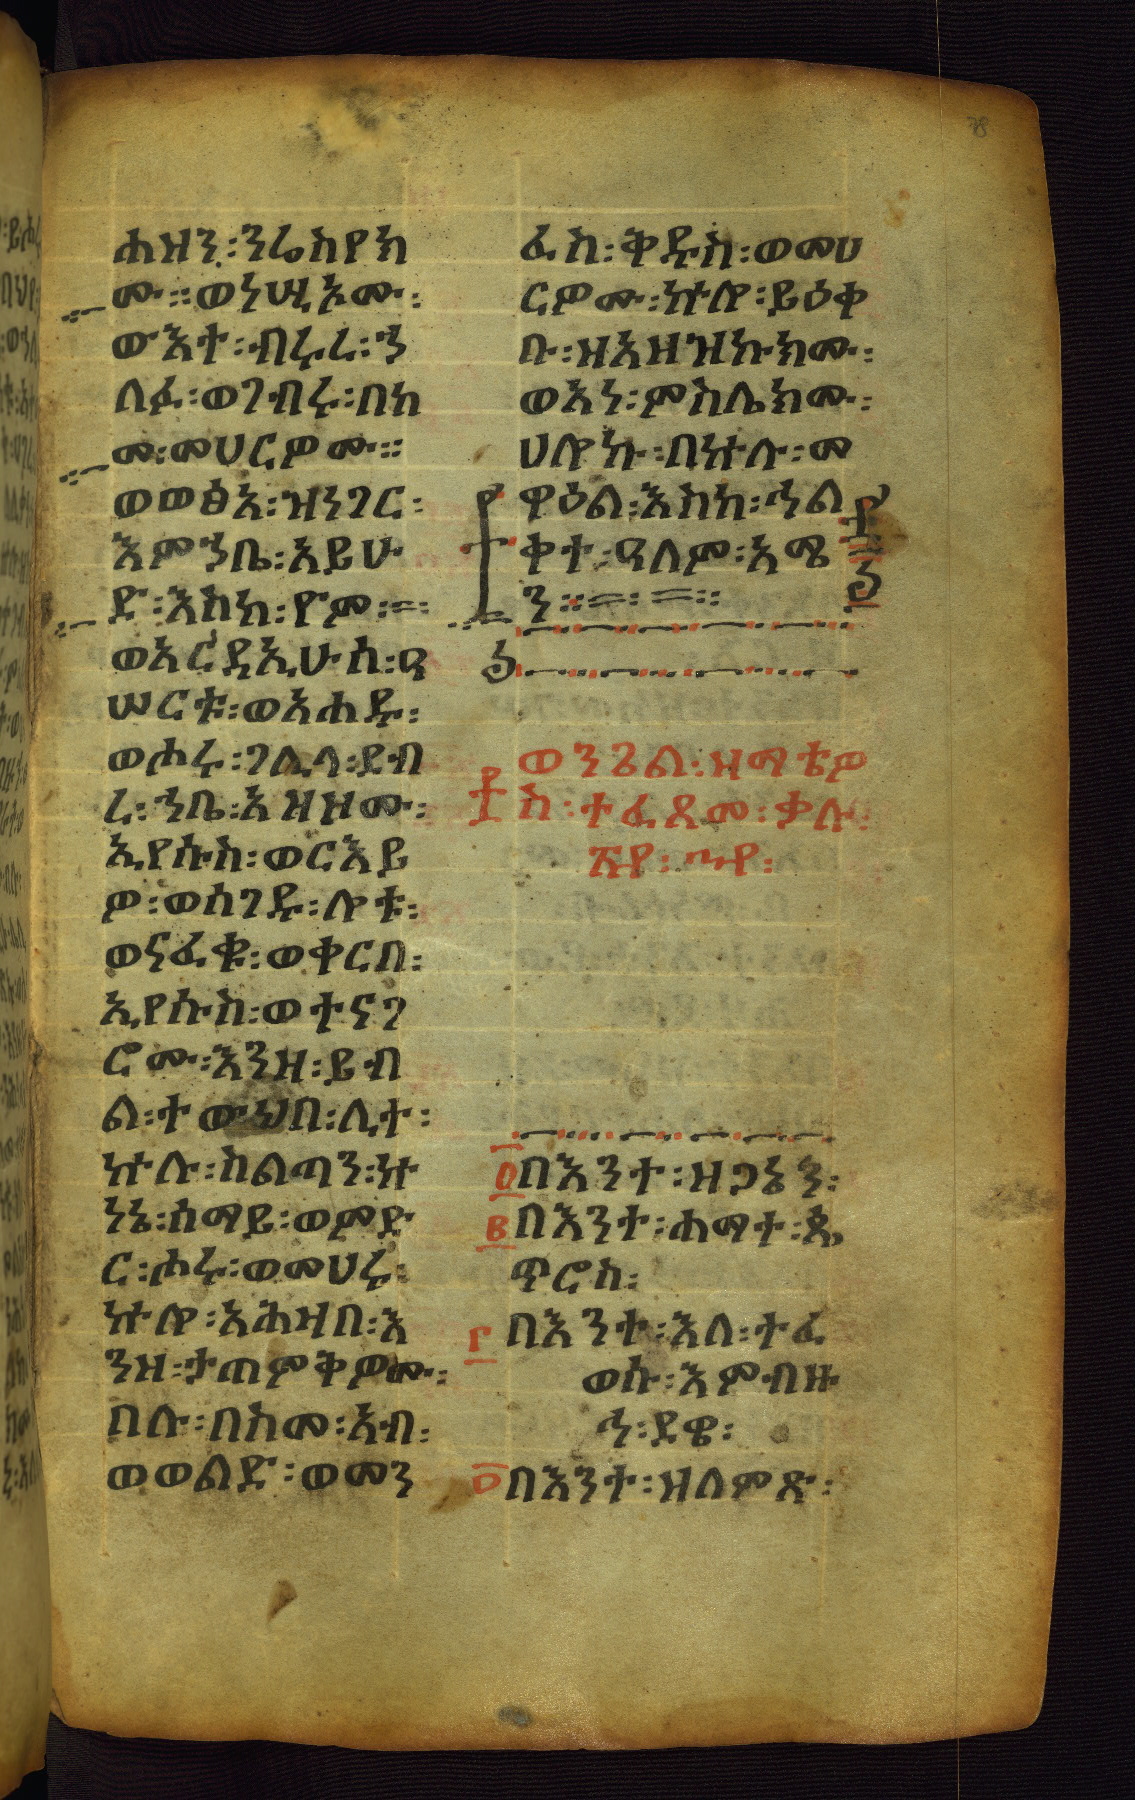 ሐዝን፡ንሬስየክ
ሙ፡፡ወነሢኦሙ፡
ውእተ፡ብሩረ፡ኀ
ለፉ፡ወገብሩ፡በከ
መ፡መሀርዎሙ፡፡
ወወፅአ፡ዝነገር፡
እምኀቤ፡አይሁ
ድ፡እስከ፡ዮም፡፡
ወአርዳኢሁሰ፡ዓ
ሠርቱ፡ወአሐዱ፡
ወሖሩ፡ገሊላ፡ደብ
ረ፡ኀቤ፡አዘዞሙ፡
ኢየሱስ፡ወርእይ
ዎ፡ወሰገዱ፡ሎቱ፡
ወናፈቁ፡ወቀርበ፡
ኢየሱስ፡ወተናገ
ሮሙ፡እንዘ፡ይብ
ል፡ተውህበ፡ሊተ፡
ኵሉ፡ስልጣን፡ኵ
ነኔ፡ሰማይ፡ወምድ
ር፡ሖሩ፡ወመሀሩ፡
ኵሎ፡አሕዛበ፡እ
ንዘ፡ታጠምቅዎሙ፡
በሉ፡በስመ፡አብ፡
ወወልድ፡ወመን
ፈስ፡ቅዱስ፡ወመሀ
ርዎሙ፡ኵሎ፡ይዕቀ
ቡ፡ዘአዘዝኩክሙ፡
ወአነ፡ምስሌክሙ፡
ሀሎኩ፡በኵሉ፡መ
ዋዕል፡እስከ፡ኅል
ቀተ፡ዓለም፡አሜ
ን፡፡
ወንጌል፡ዘማቴዎ
ስ፡ተፈጸመ፡ቃሉ፡
በእንተ፡ዘጋኔን፡
በእንተ፡ሐማተ፡ጴ
ጥሮስ፡
በእንተ፡እለ፡ተፈ
ወሱ፡እምብዙ
ኅ፡ደዌ፡
በእንተ፡ዘለምጽ፡